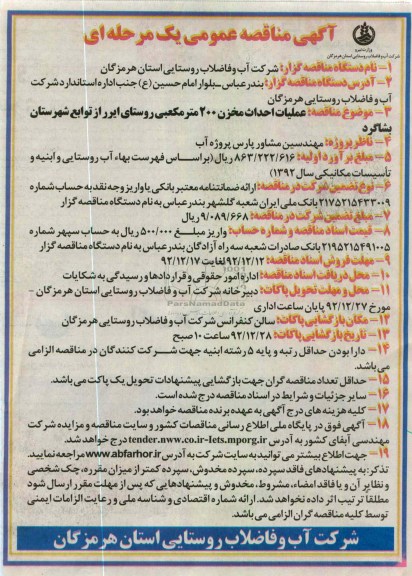 آگهی مناقصه عمومی یک مرحله ای
وزارت نیرو
شرکت آب و فاضلاب روستایی استان هرمزگان
۱- نام دستگاه مناقصه گزار: شرکت آب و فاضلاب روستایی استان هرمزگان
۲- آدرس دستگاه مناقصه گزار: بندرعباس-بلوار امام حسین (ع) جنب اداره استاندارد شرکت
آب و فاضلاب روستایی هرمزگان
۳- موضوع مناقصه: عملیات احداث مخزن ۲۰۰ متر مکعبی روستای ایرر از توابع شهرستان
بشاگرد
۴- ناظر پروژه: مهندسین مشاور پارس پروژه آب
۵- مبلغ برآورد اولیه: ۸۶۳/۲۲۲/۶۱۶ ریال (براساس فهرست بهاء آب روستایی و ابنیه و
تأسیسات مکانیکی سال ۱۳۹۲)
۶- نوع تضمین شرکت در مناقصه: ارائه ضمانتنامه معتبر بانکی یا واریز وجه نقد به حساب شماره
۲۱۷۵۲۱۵۴۳۳۰۰۹ بانک ملی ایران شعبه گلشهر بندرعباس به نام دستگاه مناقصه گزار
۷- مبلغ تضمین شرکت در مناقصه: ۹/۰۸۹/۶۶۸ ریال
۸- قیمت اسناد مناقصه و شماره حساب: واریز مبلغ ۵۰۰/۰۰۰ ریال به حساب سپهر شماره
۲۱۹۵۲۱۵۴۹۱۰۰۵ بانک صادرات شعبه سه راه آزادگان بندرعباس به نام دستگاه مناقصه گزار
۹- مهلت فروش اسناد مناقصه: ۹۲/۱۲/۱۲ لغایت ۹۲/۱۲/۱۷
۱۰- محل دریافت اسناد مناقصه: اداره امور حقوقی و قراردادها و رسیدگی به شکایات
۱۱- محل و مهلت تحویل پاکات: دبیرخانه شرکت آب و فاضلاب روستایی استان هرمزگان -
مورخ ۹۲/۱۲/۲۷ پایان ساعت اداری
ParsNamadData
۱۲- مکان بازگشایی پاکات: سالن کنفرانس شرکت آب و فاضلاب روستایی هرمزگان
۱۳- تاریخ بازگشایی پاکات: ۹۲/۱۲/۲۸ ساعت ۱۰ صبح
۱۴- دارا بودن حداقل رتبه و پایه ۵ رشته ابنیه جهت شرکت کنندگان در مناقصه الزامی
می باشد.
۱۵- حداقل تعداد مناقصه گران جهت بازگشایی پیشنهادات تحویل یک پاکت می باشد.
۱۶- سایر جزئیات و شرایط در اسناد مناقصه درج شده است.
۱۷- کلیه هزینه های درج آگهی به عهده برنده مناقصه خواهد بود.
۱۸- آگهی فوق در پایگاه ملی اطلاع رسانی مناقصات کشور و سایت مناقصه و مزایده شرکت
مهندسی آبفای کشور به آدرس tender.nww.co.ir-Iets.mporg.ir درج خواهد شد.
۱۹- جهت اطلاع بیشتر می توانید به سایت شرکت به آدرس www.abfarhor.ir مراجعه نمایید.
تذکر: به پیشنهادهای فاقد سپرده، سپرده مخدوش، سپرده کمتر از میزان مقرره، چک شخصی
و نظایر آن و یا فاقد امضاء، مشروط، مخدوش و پیشنهادهایی که پس از مهلت مقرر ارسال شود
مطلقاً ترتیب اثر داده نخواهد شد. ارائه شماره اقتصادی و شناسه ملی و رعایت الزامات ایمنی
توسط کلیه مناقصه گران الزامی می باشد.
شرکت آب و فاضلاب روستایی استان هرمزگان